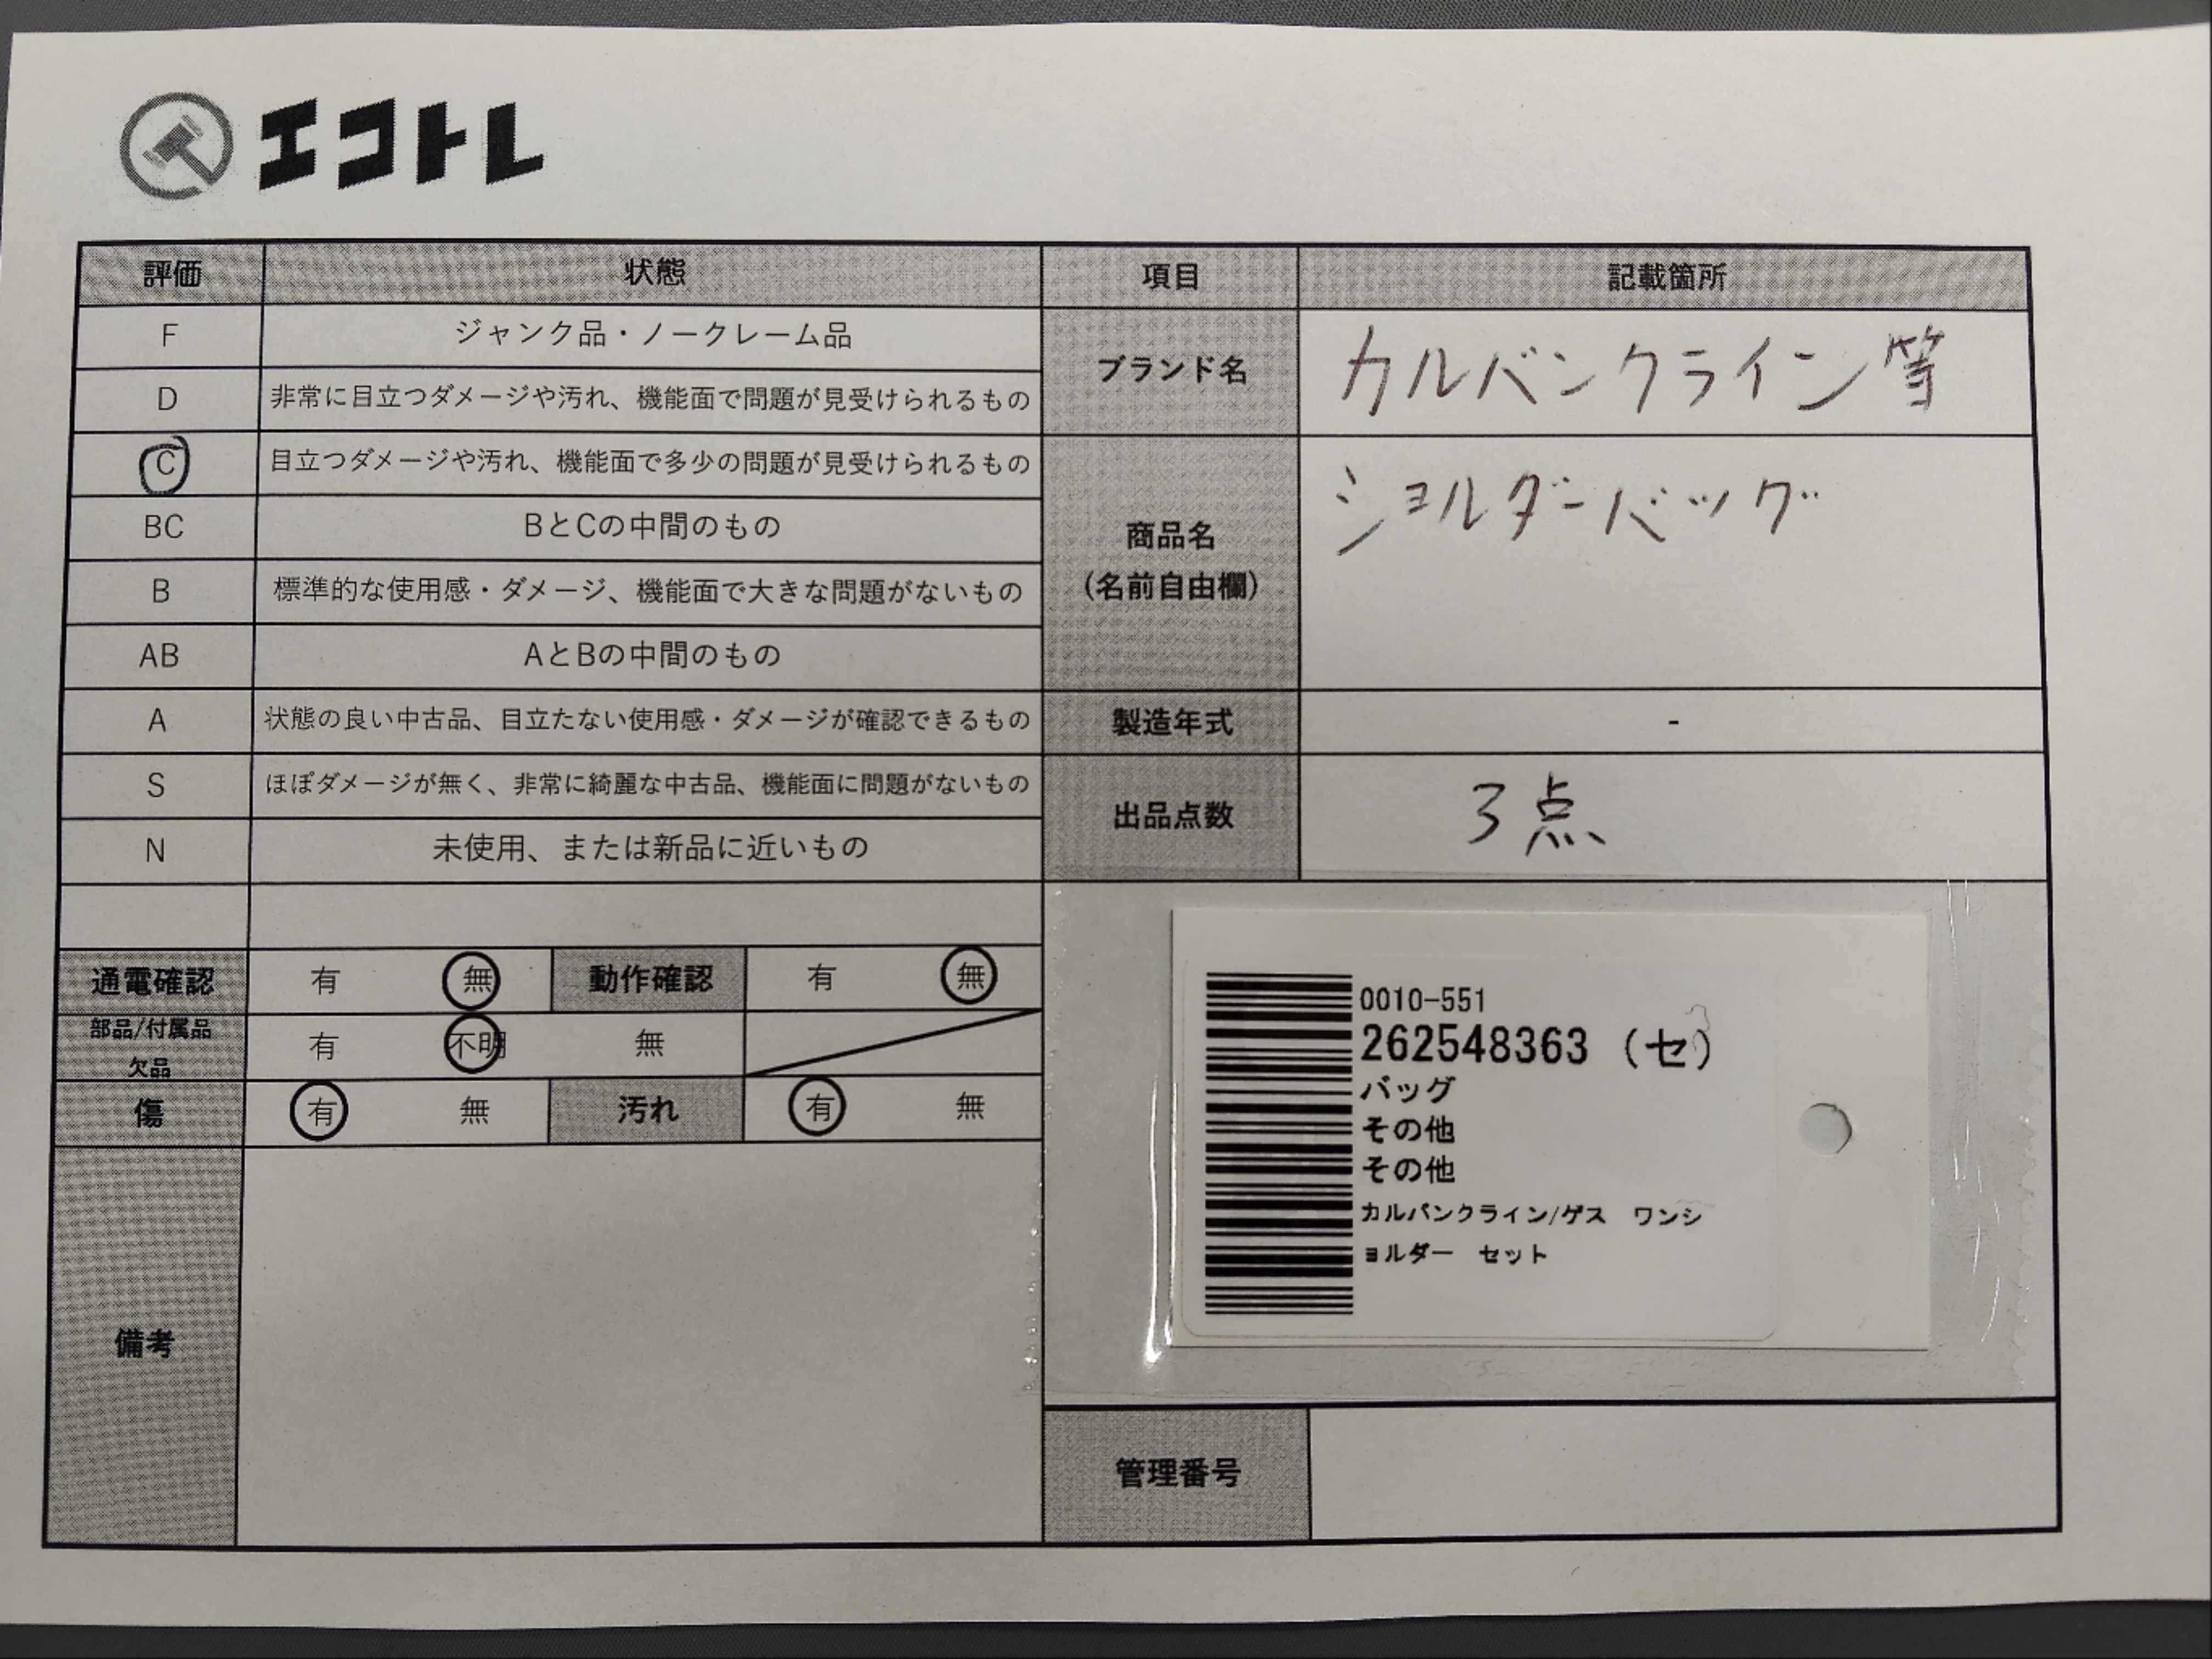 エコトレ
評価 状態 項目 記載箇所
F ジャンク品・ノークレーム品
D 非常に目立つダメージや汚れ、機能面で問題が見受けられるもの
C 目立つダメージや汚れ、機能面で多少の問題が見受けられるもの
BC BとCの中間のもの
B 標準的な使用感・ダメージ、機能面で大きな問題がないもの
AB AとBの中間のもの
A 状態の良い中古品、目立たない使用感・ダメージが確認できるもの
S ほぼダメージが無く、非常に綺麗な中古品、機能面に問題がないもの
N 未使用、または新品に近いもの
通電確認 有 無 動作確認 有 無
部品/付属品
欠品 有 不明 無
傷 有 無 汚れ 有 無
備考
ブランド名 カルバンクライン等
商品名
(名前自由欄) ショルダーバッグ
製造年式 -
出品点数 3点
0010-551
262548363 (セ)
バッグ
その他
その他
カルバンクライン/ゲス ワンシ
ョルダー セット
管理番号